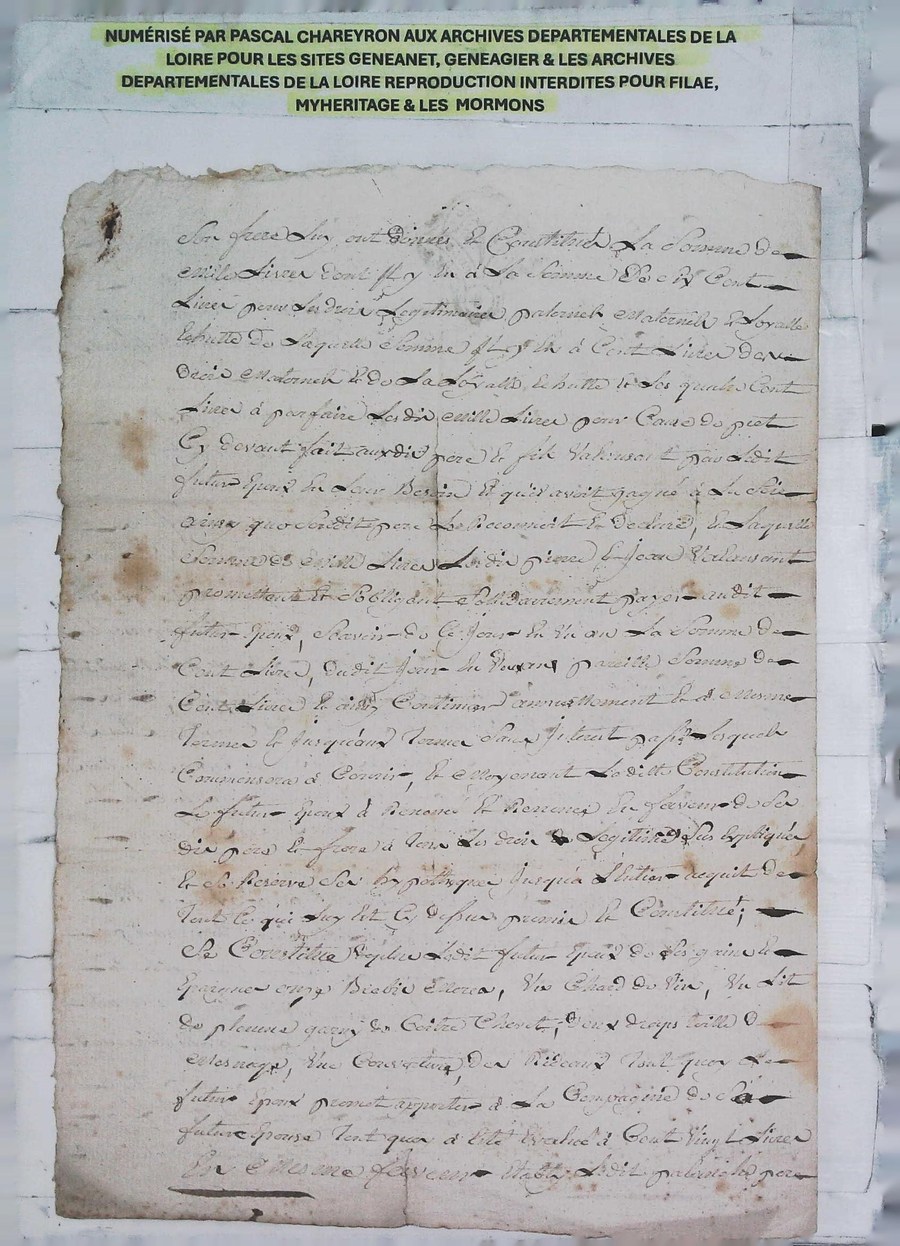 NUMÉRISÉ PAR PASCAL CHAREYRON AUX ARCHIVES DEPARTEMENTALES DE LA
LOIRE POUR LES SITES GENEANET, GENEAGIER & LES ARCHIVES
DEPARTEMENTALES DE LA LOIRE REPRODUCTION INTERDITES POUR FILAE,
MYHERITAGE & LES MORMONS
Son frere Luy ont donnés Et Constitué La Somme de
Mille Livres dont Il y En a La Somme De Cent
Livres pour Ses droits Legitimaires paternels Maternels Et Loyalle
Echutte de Laquelle Somme Il y En a Cent Livres de
Droit Maternels Et de La Loyalle Echutte Et Les quels Cent
Livres a parfaire Lesdits Mille Livres pour Cause de pret
Cy devant fait auxdits pere Et fils Valensant par Ledit
futur Epoux En Leur Besoin Et qu'il avoit gagné a
ainsy que Ledit pere Le Reconnoit Et Declare, Et Laquelle
Somme de Mille Livres Lesdits pierre Et Jean Valensant
promettent Et Sobligent Solidairement payer audit
futur Epoux, Scavoir de Ce Jour En Un an La Somme de
Cent Livres, Dudit Jour En Un an pareille Somme de
Cent Livres Et ainsy Continuer annuellement Et a Mesme
Terme Et Jusqu'aux Termes Sans Interest passé Lesquels
Commensera a Courir, Et Moyenant Laditte Constitution
Le futur Epoux a Renoncé Et Renonce En faveur de Ses
dits pere Et frere a Tous Ses droits de Legitime Sus Expliqués
Et Se Reserve Ses hypotheques Jusqu'a Lentier acquit de
Tout Ce qui Luy Est Cy dessus promis Et Constitué;
Se Constitue De plus Ledit futur Epoux de Ses gains Et
Epargnes onze Brebis Meres, Un Chard de Vin, Un Lit
de plume garny de Coitre Chevet, deux draps toille de
Mesnage, Une Couverture, des Rideaux Tout quoy Le
futur Epoux promet apporter a La Compagnie de Sa
future Epouse Tout quoy a Eté Evalué a Cent Vingt Livres
En Mesme faveur Etably Ledit pere